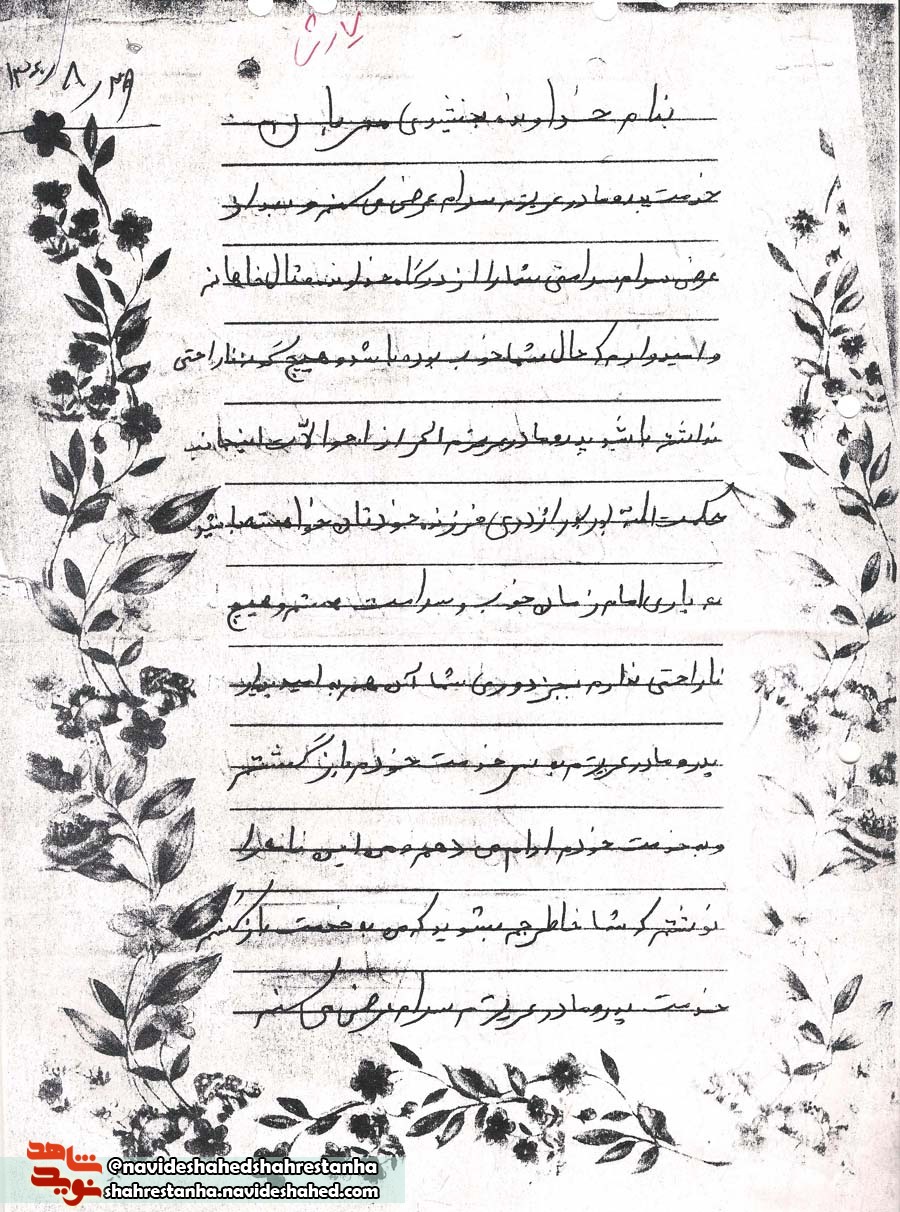 پارسا
۱۳۶۰/۸/۲۹
بنام خداونده بخشیدی مهربان
خدمت پدر و مادر عزیزم سلام عرض می کنم و پس از
عرض سلام سلامتی شما را از درگاه خداوند متال خاهانم
و امیدوارم که حال شما خوب بوده باشد و هیچ گونه ناراحتی
نداشته باشید پدر و مادر عزیزم اگر از احوالات اینجانب
حکمت الله از روی فرزند خودتان خواسته باشید
به یاری امام زمان خوب و سلامت هستم و هیچ
ناراحتی ندارم بجز دوری شما آن هم به امید
پدر و مادر عزیزم به سر خدمت خودم باز گشتم
و به خدمت خودم ادام می دهم و من این نامه را
نوشتم که شما خاطر جم بشوید که من به خدمت باز گشتم
خدمت پدر و مادر عزیزم سلام عرض می کنم
شاهد
نوید
@navideshahedshahrestanha
shahrestanha.navideshahed.com